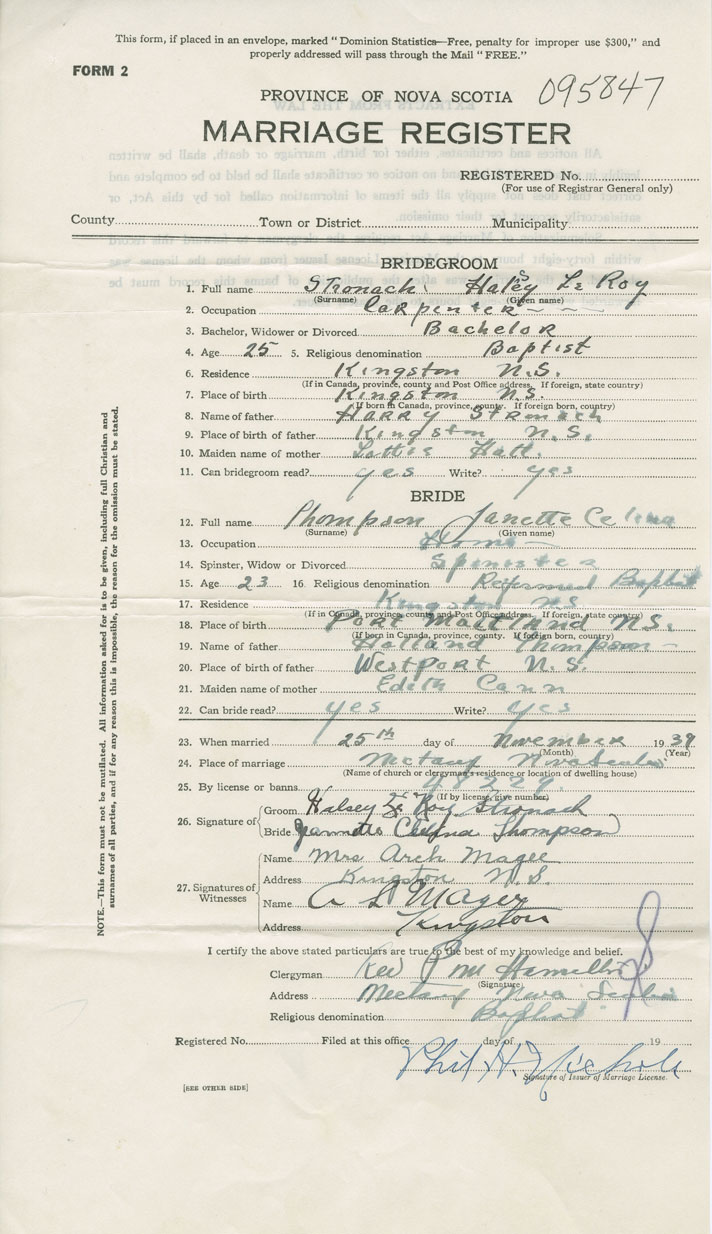 This form, if placed in an envelope, marked "Dominion Statistics—Free, penalty for improper use $300," and
properly addressed will pass through the Mail "FREE."
FORM 2
PROVINCE OF NOVA SCOTIA 095847
MARRIAGE REGISTER
REGISTERED No.
(For use of Registrar General only)
County Town or District Municipality
BRIDEGROOM
1. Full name Stronach Halsey Le Roy
(Surname) (Given name)
2. Occupation Carpenter
3. Bachelor, Widower or Divorced Bachelor
4. Age 25 5. Religious denomination Baptist
6. Residence Kingston N.S.
(If in Canada, province, county and Post Office address. If foreign, state country)
7. Place of birth Kingston N.S.
(If born in Canada, province, county. If foreign born, country)
8. Name of father Harry Stronach
9. Place of birth of father Kingston N.S.
10. Maiden name of mother Lottie Hall.
11. Can bridegroom read? yes Write? yes
BRIDE
12. Full name Thompson Janette Celina
(Surname) (Given name)
13. Occupation Home
14. Spinster, Widow or Divorced Spinster
15. Age 23 16. Religious denomination Reformed Baptist
17. Residence Kingston NS
(If in Canada, province, county and Post Office address. If foreign, state country)
18. Place of birth Port Maitland N.S.
(If born in Canada, province, county. If foreign born, country)
19. Name of father Holland Thompson
20. Place of birth of father Westport N.S.
21. Maiden name of mother Edith Cann
22. Can bride read? yes Write? yes
23. When married 25th day of November 1939
(Month) (Year)
24. Place of marriage Nictaux Nova Scotia
(Name of church or clergyman's residence or location of dwelling house)
25. By license or banns
(If by license, give number)
26. Signature of Groom Halsey Le Roy Stronach
Bride Thompson
27. Signatures of Witnesses
Name Mrs Arch Magee
Address Kingston N.S.
Name A L Magee
Address Kingston
I certify the above stated particulars are true to the best of my knowledge and belief.
Clergyman Rev
(Signature)
Address Nictaux Nova Scotia
Religious denomination Baptist
Registered No. Filed at this office day of 19
Phil H. Nichols
Signature of Issuer of Marriage License.
[SEE OTHER SIDE]
NOTE.—This form must not be mutilated. All information asked for is to be given, including full Christian and
surnames of all parties, and if for any reason this is impossible, the reason for the omission must be stated.